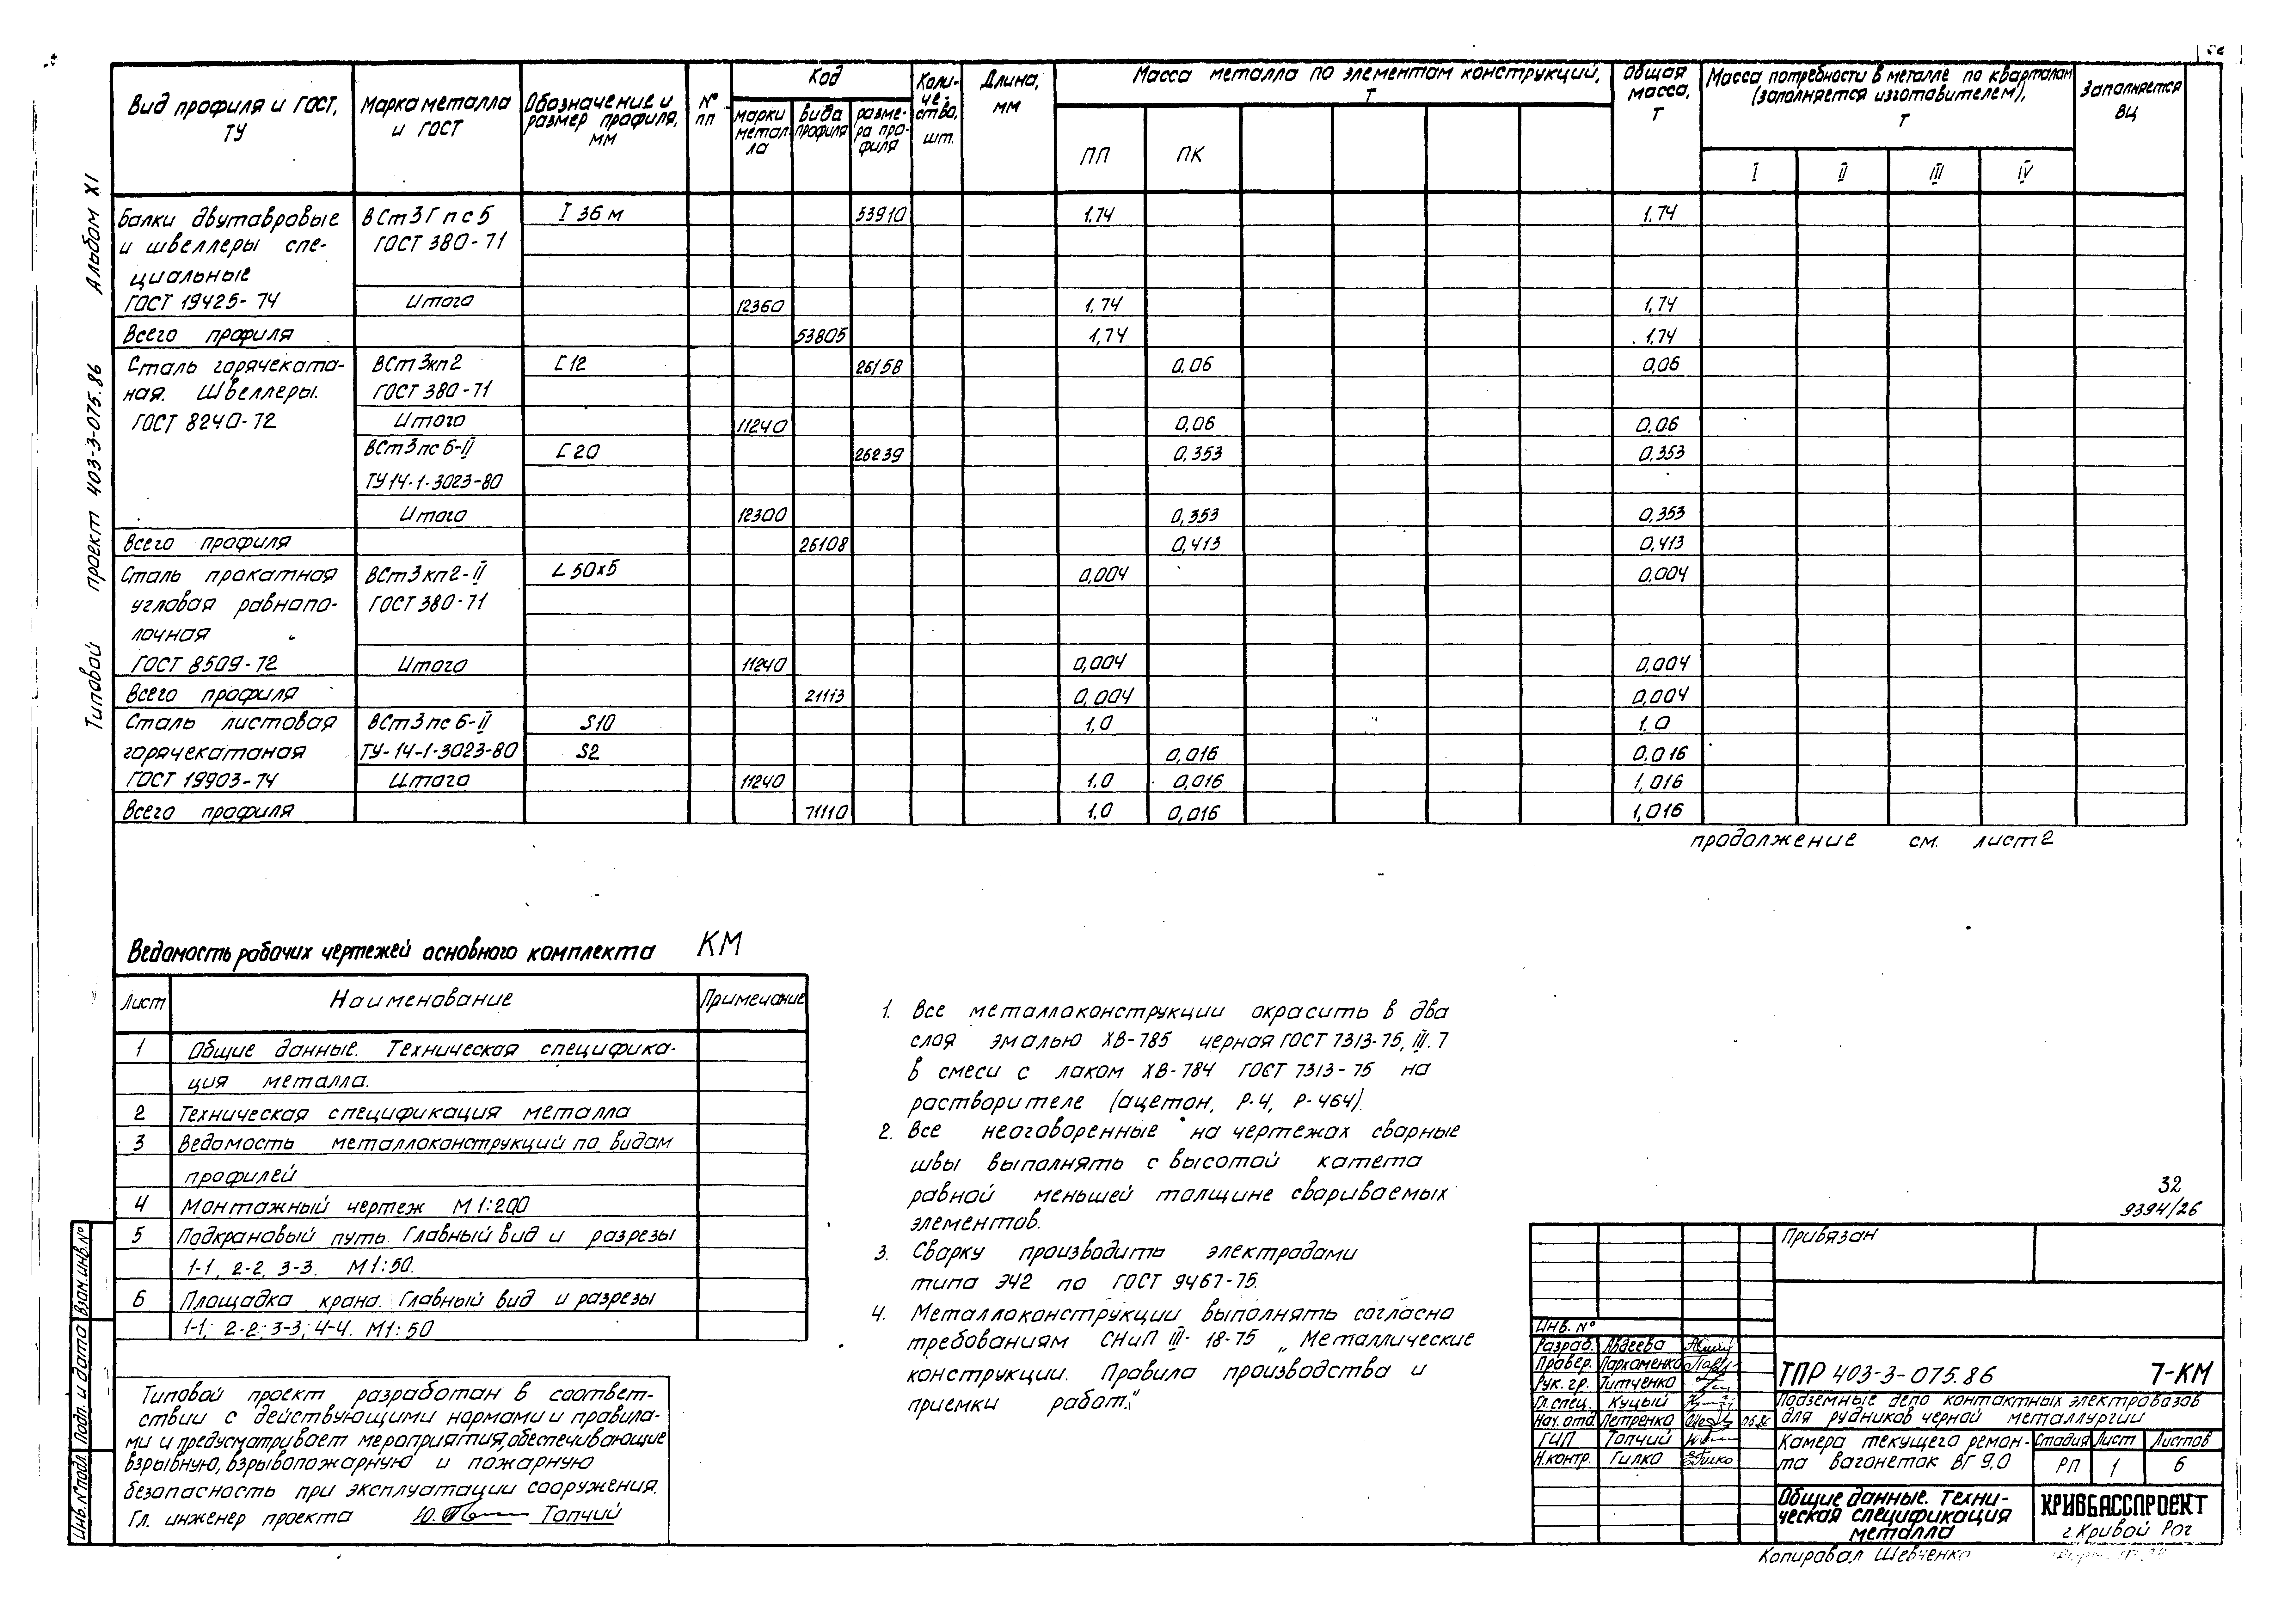 Альбом XI
Типовой проект 403-3-075.86
Вид профиля и ГОСТ, ТУ
Марка металла и ГОСТ
Обозначение и размер профиля, мм
№ пп
Код
марки метал-ла
вида профиля
разме-ра про-филя
Коли-че-ство, шт.
Длина, мм
Масса металла по элементам конструкций, Т
ПП ПК
Общая масса, Т
Масса потребности в металле по кварталам (заполняется изготовителем), Т
I II III IV
Заполняется ВЦ
Балки двутавровые ВСт3Гпс5 I 36м 53910 1.74 1.74
и швеллеры спе- ГОСТ 380-71
циальные
ГОСТ 19425-74 Итого 12360 1,74 1,74
Всего профиля 53805 1,74 1.74
Сталь горячеката- ВСт3кп2 [ 12 26158 0,06 0,06
ная. Швеллеры. ГОСТ 380-71
ГОСТ 8240-72 Итого 11240 0,06 0,06
ВСт3пс6-II [ 20 26239 0,353 0,353
ТУ14-1-3023-80
Итого 12300 0,353 0,353
Всего профиля 26108 0,413 0,413
Сталь прокатная ВСт3кп2-II L 50х5 0,004 0.004
угловая равнопо- ГОСТ 380-71
лочная
ГОСТ 8509-72 Итого 11240 0,004 0,004
Всего профиля 21113 0,004 0,004
Сталь листовая ВСт3пс6-II S10 1,0 1,0
горячекатаная ТУ-14-1-3023-80 S2 0,016 0.016
ГОСТ 19903-74 Итого 11240 1.0 0,016 1,016
Всего профиля 71110 1.0 0,016 1,016
продолжение см. лист 2
Ведомость рабочих чертежей основного комплекта КМ
Лист Наименование Примечание
1 Общие данные. Техническая специфика-
ция металла.
2 Техническая спецификация металла
3 Ведомость металлоконструкций по видам
профилей
4 Монтажный чертеж М1:200
5 Подкрановый путь. Главный вид и разрезы
1-1, 2-2, 3-3. М1:50.
6 Площадка крана. Главный вид и разрезы
1-1; 2-2; 3-3; 4-4. М1:50
Типовой проект разработан в соответ-
ствии с действующими нормами и правила-
ми и предусматривает мероприятия, обеспечивающие
взрывную, взрывопожарную и пожарную
безопасность при эксплуатации сооружения.
Гл. инженер проекта Топчий
1. Все металлоконструкции окрасить в два
слоя эмалью ХВ-785 черная ГОСТ 7313-75, III.7
в смеси с лаком ХВ-784 ГОСТ 7313-75 на
растворителе (ацетон, Р-4, Р-464).
2. Все неоговоренные на чертежах сварные
швы выполнять с высотой катета
равной меньшей толщине свариваемых
элементов.
3. Сварку производить электродами
типа Э42 по ГОСТ 9467-75.
4. Металлоконструкции выполнять согласно
требованиям СНиП III-18-75 „Металлические
конструкции. Правила производства и
приемки работ."
32
9394/26
Привязан
Инв. №
Разраб. Авдеева
Провер. Пархоменко
Рук. гр. Титченко
Гл. спец. Куцый
Нач. отд. Петренко
ГИП Топчий
Н.контр. Гилко
ТПР 403-3-075.86 7-КМ
Подземные депо контактных электровозов
для рудников черной металлургии
Камера текущего ремон-
та вагонеток ВГ 9,0
Стадия Лист Листов
РП 1 6
Общие данные. Техни-
ческая спецификация
металла
КРИВБАССПРОЕКТ
г. Кривой Рог
Копировал Шевченко
Инв.№подл. Подп. и дата Взам.инв.№